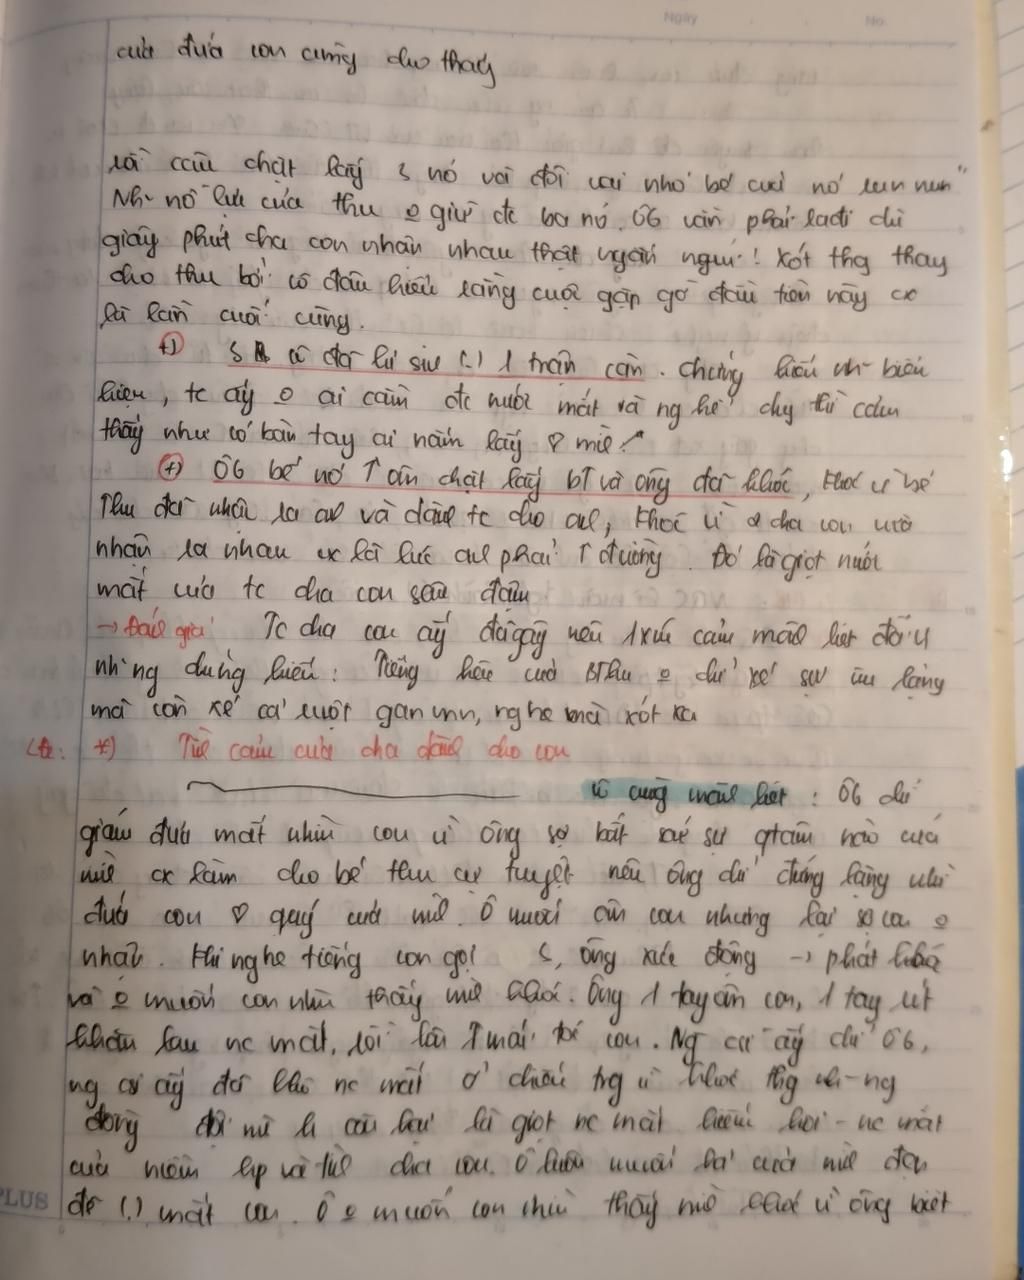 Ngày No.
của đứa con cũng cho thấy
rồi cứu chặt lấy s nó và đôi vai nhỏ bé của nó run run"
Nh~ nỗ lực của thu o giữ đc ba nó. ÔG vẫn phải ra đi dù
giây phút cha con nhận nhau thật ngắn ngủi! Xót thg thay
cho thu bởi cô đâu hiểu rằng cuộc gặp gỡ đầu tiên này cx
là lần cuối cùng.
+) cô đã lí sự (.) 1 trận . Chứng kiến nh~ biểu
hiện, tc ấy o ai cầm đc nước mắt và ng kể chy thì cảm
thấy như có bàn tay ai nắm lấy ♡ mìh
(+) ÔG bế nó ↑ ôm chặt lấy bT và ông đã khóc, khóc vì bé
Thu đã nhận ra và dành tc cho , khóc vì 2 cha con vừa
nhận ra nhau cx là lúc phải ↑ đường. Đó là giọt nước
mắt của tc cha con sâu đậm
→ Đánh giá Tc cha con ấy đã gây nên 1 xúc cảm mãnh liệt đối vs
nh~ng chứng kiến: Tiếng kêu của BThu o chỉ xé sự im lặng
mà còn xé cả ruột gan mn, nghe mà xót xa
*) Tình cảm của cha dành cho con
vô cùng mãnh liệt : ÔG chỉ
giám đưa mắt nhìn con vì ông sợ bất kể sự qtâm nào của
mìh cx làm cho bé thu cự tuyệt nên ông chỉ đứng lặng nhìn
đứa con ♡ quý của mìh. Ô muốn ôm con nhưng lại sợ con o
nhận. Khi nghe tiếng con gọi , ông xúc động → phát khóc
và o muốn con nhìn thấy mìh khóc. Ông 1 tay ôm con, 1 tay rút
khăn lau nc mắt, rồi lên ↑ mái tóc con. Ng cứ ấy chỉ ÔG,
ng cứ ấy đã nc mắt ở chiến trg vì khóc thg nh~ng
đồng đội là giọt nc mắt hiếm hoi - nc mắt
của niềm hp và tình cha con. Ô luôn muốn của mìh đẹp
đẽ (.) mắt con. Ô o muốn con nhìn thấy mìh khóc vì ông biết
PLUS